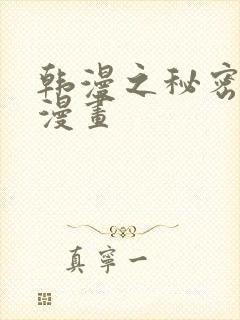 韩漫之秘密
漫畫
真寧一